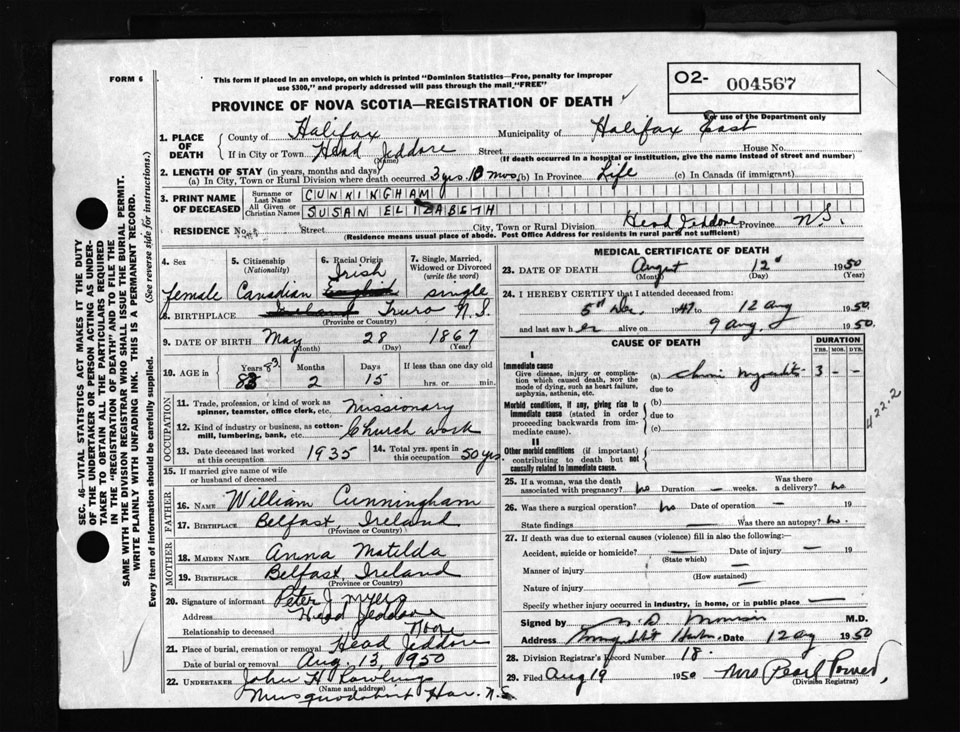 FORM 6
This form if placed in an envelope, on which is printed "Dominion Statistics—Free, penalty for improper
use $300," and properly addressed will pass through the mail, "FREE"
O2- 004567
PROVINCE OF NOVA SCOTIA—REGISTRATION OF DEATH
For use of the Department only
1. PLACE OF DEATH
County of Halifax Municipality of Halifax East
If in City or Town Head Jeddore Street House No.
(Name) (If death occurred in a hospital or institution, give the name instead of street and number)
2. LENGTH OF STAY (in years, months and days)
(a) In City, Town or Rural Division where death occurred 3 yrs. 10 mos. (b) In Province Life (c) In Canada (if immigrant)
3. PRINT NAME OF DECEASED
Surname or Last Name CUNNINGHAM
All Given or Christian Names SUSAN ELIZABETH
RESIDENCE No. Street City, Town or Rural Division Head Jeddore Province N.S.
(Residence means usual place of abode. Post Office Address for residents in rural parts not sufficient)
4. Sex female
5. Citizenship (Nationality) Canadian
6. Racial Origin Irish English
7. Single, Married, Widowed or Divorced (write the word) single
8. BIRTHPLACE Ireland Truro N.S.
(Province or Country)
9. DATE OF BIRTH May 28 1867
(Month) (Day) (Year)
10. AGE in Years 83 Months 2 Days 15 If less than one day old hrs. or min.
OCCUPATION
11. Trade, profession, or kind of work as spinner, teamster, office clerk, etc. Missionary
12. Kind of industry or business, as cotton-mill, lumbering, bank, etc. Church work
13. Date deceased last worked at this occupation 1935
14. Total yrs. spent in this occupation 50 yrs.
15. If married give name of wife or husband of deceased
FATHER
16. NAME William Cunningham
17. BIRTHPLACE Belfast Ireland
(Province or Country)
MOTHER
18. MAIDEN NAME Anna Matilda
19. BIRTHPLACE Belfast, Ireland
(Province or Country)
20. Signature of informant Peter J Myers
Address Head Jeddore
Relationship to deceased None
21. Place of burial, cremation or removal Head Jeddore
Date of burial or removal Aug. 13, 1950
22. UNDERTAKER John H Rowlings
(Name and address)
Musquodoboit Har. N.S.
MEDICAL CERTIFICATE OF DEATH
23. DATE OF DEATH August 12 1950
(Month) (Day) (Year)
24. I HEREBY CERTIFY that I attended deceased from:
5 Dec. 1947 to 12 Aug 1950
and last saw her alive on 9 Aug. 1950.
CAUSE OF DEATH
DURATION
YRS. MOS. DYS.
I
Immediate cause
Give disease, injury or complication which caused death, NOT the mode of dying, such as heart failure, asphyxia, asthenia, etc.
(a) Chronic Myocarditis 3 - -
due to
Morbid conditions, if any, giving rise to immediate cause (stated in order proceeding backwards from immediate cause).
(b)
due to
(c)
II
Other morbid conditions (if important) contributing to death but not causally related to immediate cause.
422.2
25. If a woman, was the death associated with pregnancy? No Duration — weeks. Was there a delivery? No
26. Was there a surgical operation? No Date of operation — 19
State findings — Was there an autopsy? No.
27. If death was due to external causes (violence) fill in also the following:—
Accident, suicide or homicide? — Date of injury — 19
(State which)
Manner of injury —
(How sustained)
Nature of injury —
Specify whether injury occurred in industry, in home, or in public place —
Signed by M.D.
Address Date 12 Aug 1950
28. Division Registrar's Record Number 18.
29. Filed Aug 19 1950 Mrs Pearl Power
(Division Registrar)
SEC. 46—VITAL STATISTICS ACT MAKES IT THE DUTY
OF THE UNDERTAKER OR PERSON ACTING AS UNDERTAKER
TO OBTAIN ALL THE PARTICULARS REQUIRED
IN THE "REGISTRATION OF DEATH" AND TO FILE THE
SAME WITH THE DIVISION REGISTRAR WHO SHALL ISSUE THE BURIAL PERMIT.
WRITE PLAINLY WITH UNFADING INK. THIS IS A PERMANENT RECORD.
Every item of information should be carefully supplied. (See reverse side for instructions.)